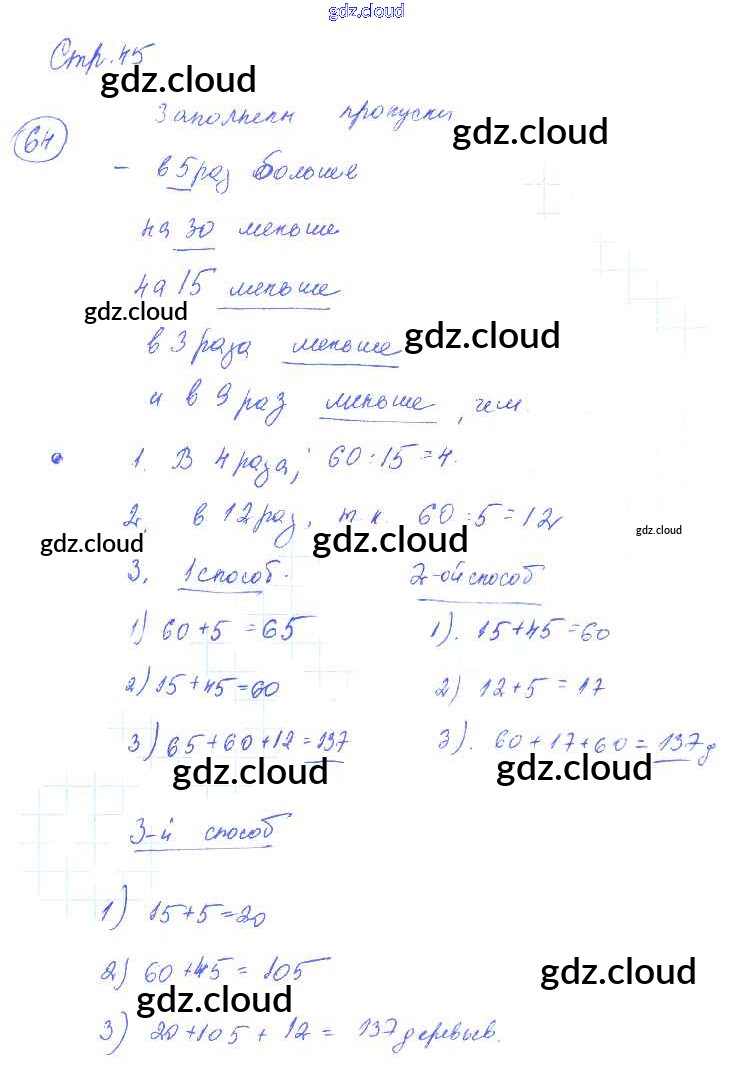 gdz.cloud
Стр. 45
gdz.cloud
64 Заполнены пропуски
gdz.cloud
- в 5 раз больше
на 30 меньше
на 15 меньше
gdz.cloud gdz.cloud
в 3 раза меньше
gdz.cloud
и в 9 раз меньше, чем.
1. В 4 раза; 60:15=4.
2. в 12 раз, т.к. 60:5=12
gdz.cloud gdz.cloud gdz.cloud
3. 1 способ. 2-ой способ
1) 60+5=65 1). 15+45=60
2) 15+45=60 2) 12+5=17
3) 65+60+12=137 3). 60+17+60=137д
gdz.cloud gdz.cloud
3-й способ
1) 15+5=20
2) 60+45=105
gdz.cloud gdz.cloud
3) 20+105+12=137 деревьев.